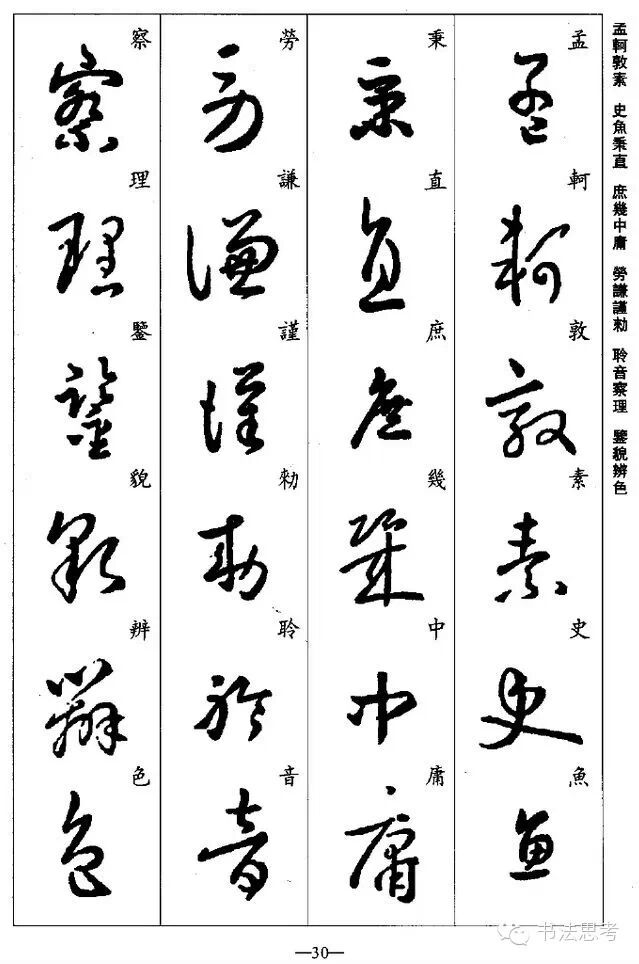 孟軻敦素 史魚秉直 庶幾中庸 勞謙謹勅 聆音察理 鑒貌辨色
孟軻敦素史魚
秉直庶幾中庸
勞謙謹勅聆音
察理鑒貌辨色
—30—
书法思考